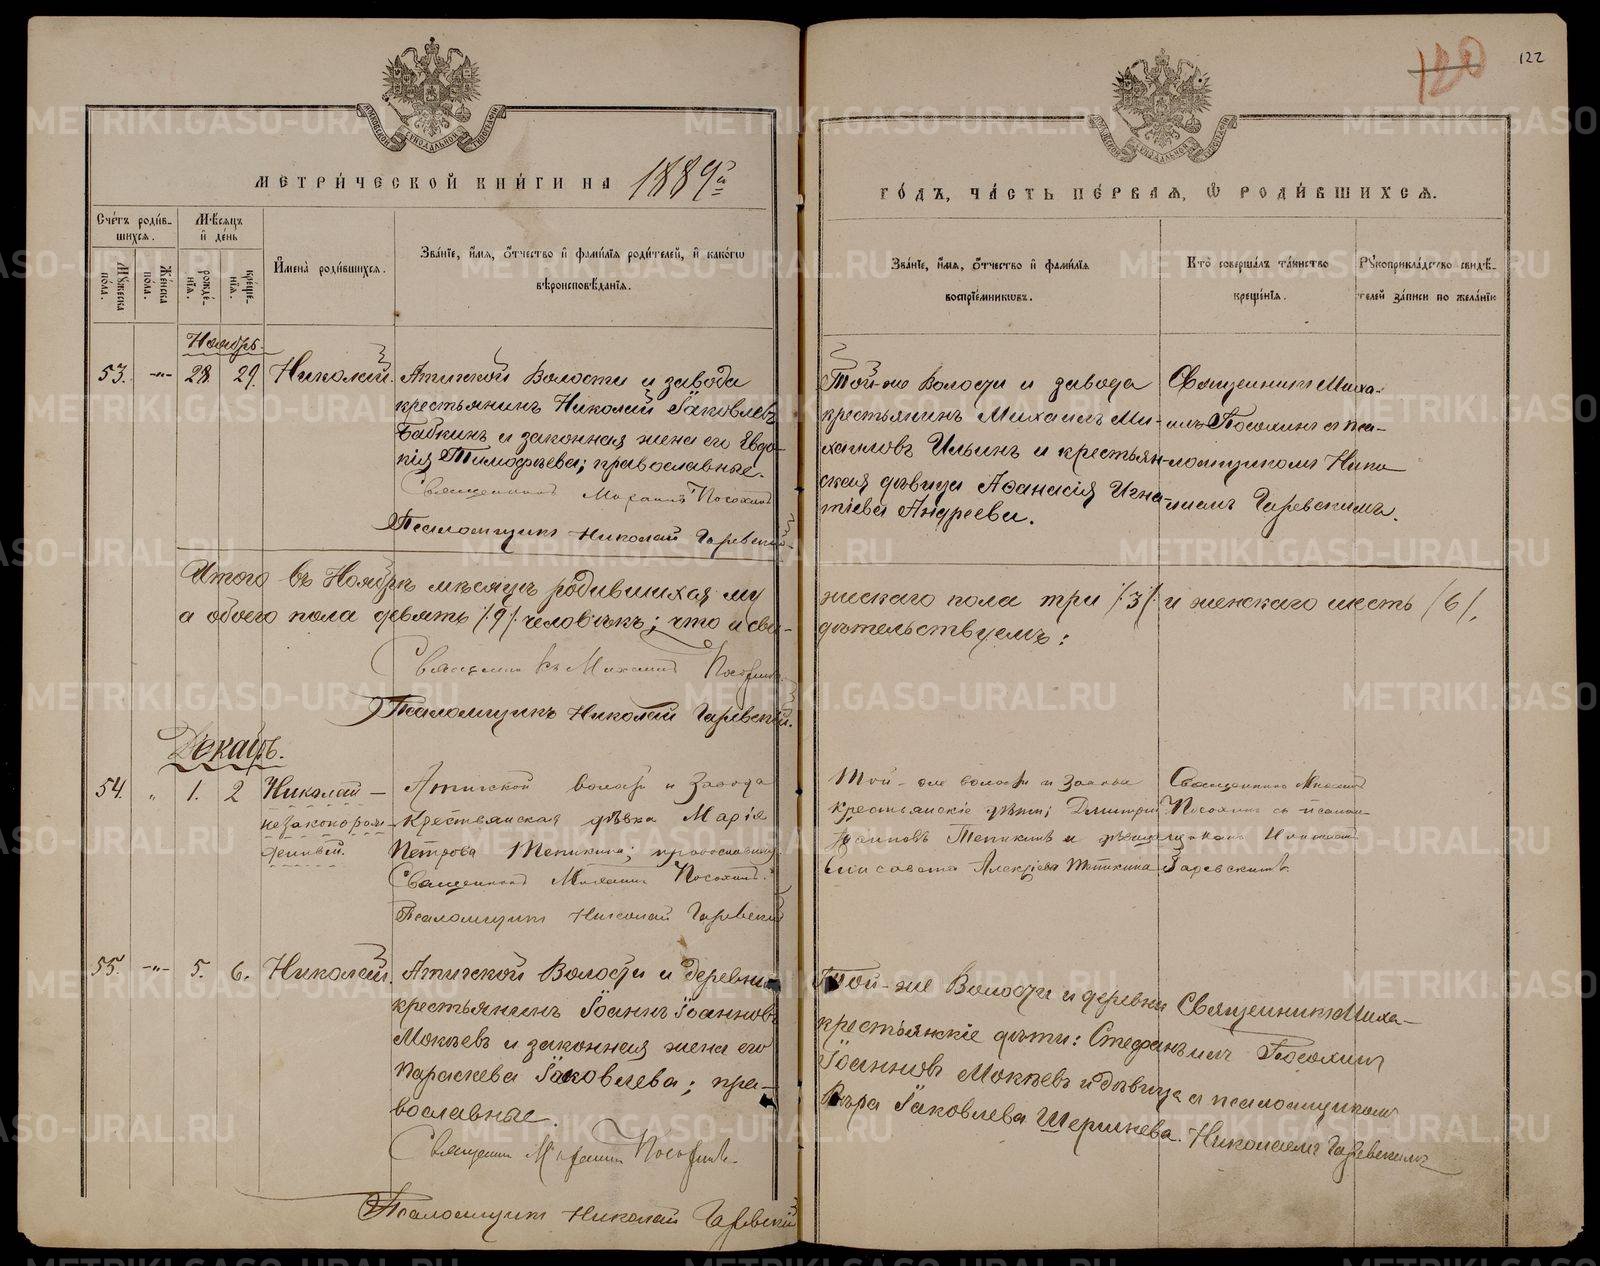 120 122
МЕТРИ́ЧЕСКОЙ КНИ́ГИ НА 1889й
ГО́ДЪ, ЧА́СТЬ ПЕ́РВАЯ, Ѿ РОДИ́ВШИХСЯ.
Счє́тъ роди́в-
шихся.
Мѣ́сяцъ
и де́нь
Му́жеска
пола.
Же́нска
пола.
рожде́-
нія.
креще́-
нія.
Имена̀ роди́вшихся.
Зва́ніе, и́мя, о́тчество и фами́лія роди́телей, и како́гѡ
вѣроисповѣ́данія.
Зва́ніе, и́мя, о́тчество и фами́лія
воспріе́мникѡвъ.
Кто̀ соверша́лъ та́инство
креще́нія.
Рукоприкла́дство свидѣ́-
телей за́писи по жела́нію
Ноябрь.
53. -"- 28. 29. Николай.
Атигской Волости и завода
крестьянинъ Николай Іаковлевъ
Бабкинъ и законная жена его Евдо-
кія Тимофѣева; православные.
Священникъ Михаилъ Посохинъ
Псаломщикъ Николай Гаревскій.
Той-же Волости и завода
крестьянинъ Михаилъ Ми-
хаиловъ Ильинъ и крестьян-
ская дѣвица Афанасія Игна-
тіева Андреева.
Священникъ Миха-
илъ Посохинъ съ пса-
ломщикомъ Нико-
лаемъ Гаревскимъ.
Итого въ Ноябрѣ мѣсяцѣ родившихся му
жескаго пола три /3/ и женскаго шесть /6/,
а обоего пола девять /9/ человѣкъ; что и сви-
дѣтельствуемъ:
Священникъ Михаилъ Посохинъ
Псаломщикъ Николай Гаревскій.
Декабрь.
54. " 1. 2 Николай –
незаконорож-
денный.
Атигской волости и завода
Крестьянская дѣвка Марія
Петрова Тепикина; православная.
Священникъ Михаилъ Посохинъ.
Псаломщикъ Николай Гаревскій
Той-же волости и завода
крестьянскіе дѣти: Дмитрій
Тепикинъ и дѣвица
Елисавета Алексѣева Тепикина
Священникъ Михаилъ
Посохинъ съ псалом-
щикомъ Николаемъ
Гаревскимъ.
55. -"- 5. 6. Николай.
Атигской Волости и деревни
крестьянинъ Іоаннъ Іоанновъ
Мокѣевъ и законная жена его
Параскева Іаковлева; пра-
вославные.
Священникъ Михаилъ Посохинъ.
Псаломщикъ Николай Гаревскій
Той-же Волости и деревни
крестьянскіе дѣти: Стефанъ
Іоанновъ Мокѣевъ и дѣвица
Вѣра Іаковлева Шершнева.
Священникъ Миха-
илъ Посохинъ
съ псаломщикомъ
Николаемъ Гаревскимъ
METRIKI.GASO-URAL.RU